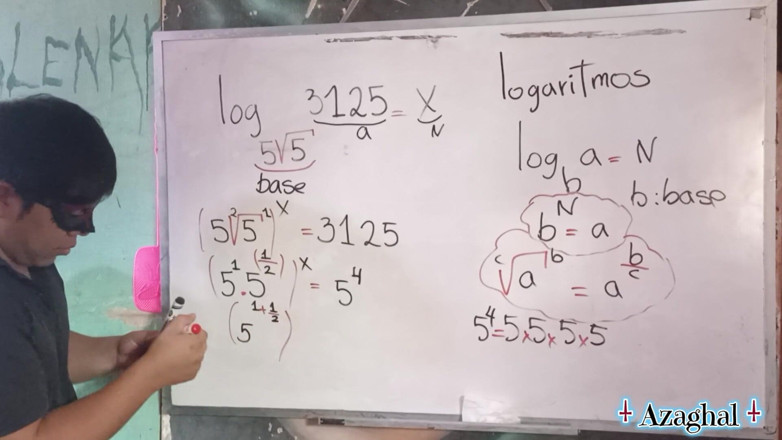 LENKA
log 5√5 3125 = x
a N
base
(5 ²√5¹)ˣ = 3125
(5¹ . 5^(1/2))ˣ = 5⁴
(5^(1+1/2))
logaritmos
log_b a = N
b:base
bᴺ = a
ᶜ√aᵇ = a^(b/c)
5⁴=5×5×5×5
Azaghal